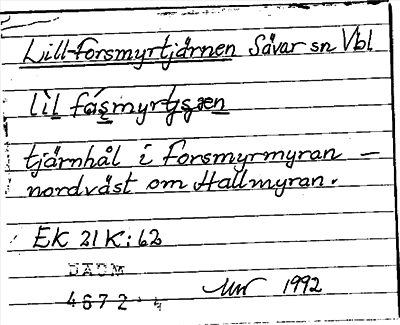 Lill-Forsmyrtjärnen Sävar sn Vbl
lìl fásmyrtjsæn
tjärnhål i Forsmyrmyran –
nordväst om Hallmyran.
EK 21K:62
DAUM
4672
1992